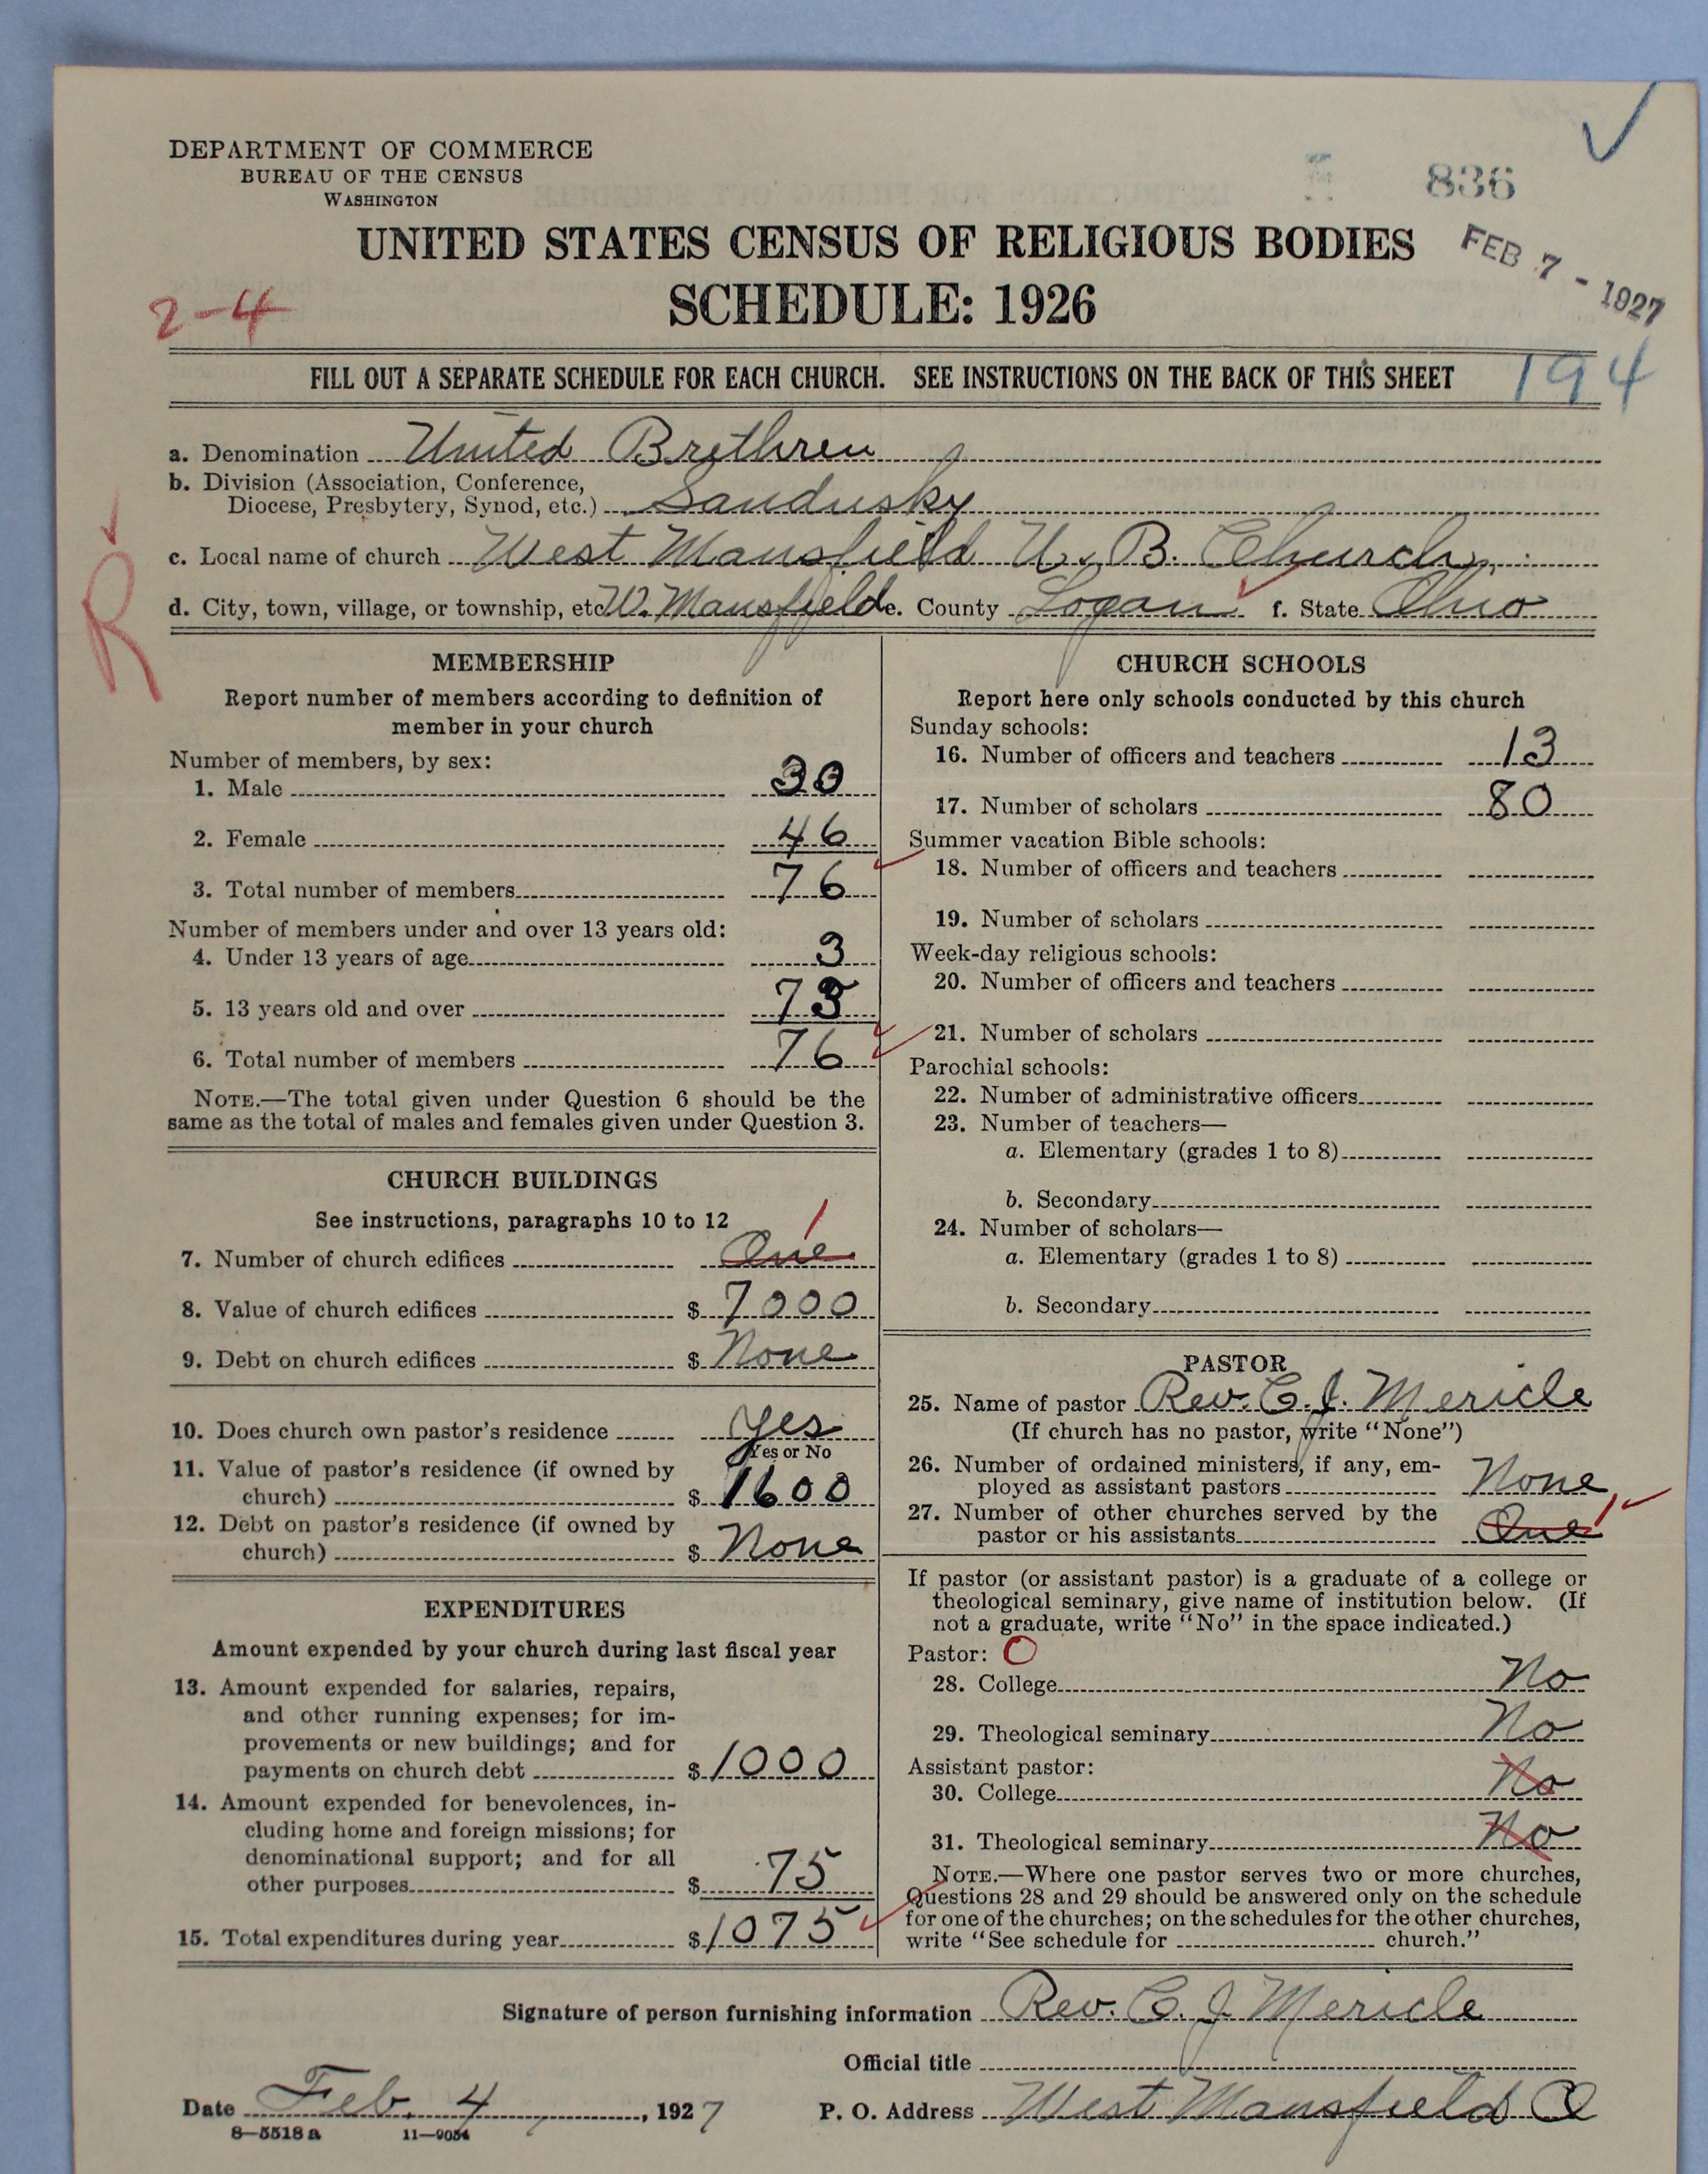 DEPARTMENT OF COMMERCE
BUREAU OF THE CENSUS
WASHINGTON
836
UNITED STATES CENSUS OF RELIGIOUS BODIES
FEB 7 - 1927
SCHEDULE: 1926
2-4
FILL OUT A SEPARATE SCHEDULE FOR EACH CHURCH. SEE INSTRUCTIONS ON THE BACK OF THIS SHEET
194
a. Denomination United Brethren
b. Division (Association, Conference,
Diocese, Presbytery, Synod, etc.) Sandusky
c. Local name of church West Mansfield U. B. Church
R
d. City, town, village, or township, etc. W. Mansfield e. County Logan f. State Ohio
MEMBERSHIP
Report number of members according to definition of
member in your church
Number of members, by sex:
1. Male 30
2. Female 46
3. Total number of members 76
Number of members under and over 13 years old:
4. Under 13 years of age 3
5. 13 years old and over 73
6. Total number of members 76
NOTE.—The total given under Question 6 should be the
same as the total of males and females given under Question 3.
CHURCH BUILDINGS
See instructions, paragraphs 10 to 12
1
7. Number of church edifices One
8. Value of church edifices $ 7000
9. Debt on church edifices $ None
10. Does church own pastor's residence yes
Yes or No
11. Value of pastor's residence (if owned by
church) $ 1600
12. Debt on pastor's residence (if owned by
church) $ None
EXPENDITURES
Amount expended by your church during last fiscal year
13. Amount expended for salaries, repairs,
and other running expenses; for im-
provements or new buildings; and for
payments on church debt $ 1000
14. Amount expended for benevolences, in-
cluding home and foreign missions; for
denominational support; and for all
other purposes $ 75
15. Total expenditures during year $ 1075
CHURCH SCHOOLS
Report here only schools conducted by this church
Sunday schools:
16. Number of officers and teachers 13
17. Number of scholars 80
Summer vacation Bible schools:
18. Number of officers and teachers
19. Number of scholars
Week-day religious schools:
20. Number of officers and teachers
21. Number of scholars
Parochial schools:
22. Number of administrative officers
23. Number of teachers—
a. Elementary (grades 1 to 8)
b. Secondary
24. Number of scholars—
a. Elementary (grades 1 to 8)
b. Secondary
PASTOR
25. Name of pastor Rev. C. J. Mericle
(If church has no pastor, write "None")
26. Number of ordained ministers, if any, em-
ployed as assistant pastors None
27. Number of other churches served by the
pastor or his assistants One 1
If pastor (or assistant pastor) is a graduate of a college or
theological seminary, give name of institution below. (If
not a graduate, write "No" in the space indicated.)
Pastor: O
28. College No
29. Theological seminary No
Assistant pastor:
30. College No
31. Theological seminary No
NOTE.—Where one pastor serves two or more churches,
Questions 28 and 29 should be answered only on the schedule
for one of the churches; on the schedules for the other churches,
write "See schedule for church."
Signature of person furnishing information Rev. C. J. Mericle
Official title
Date Feb. 4, 1927 P. O. Address West Mansfield O
8—5518a 11—9054